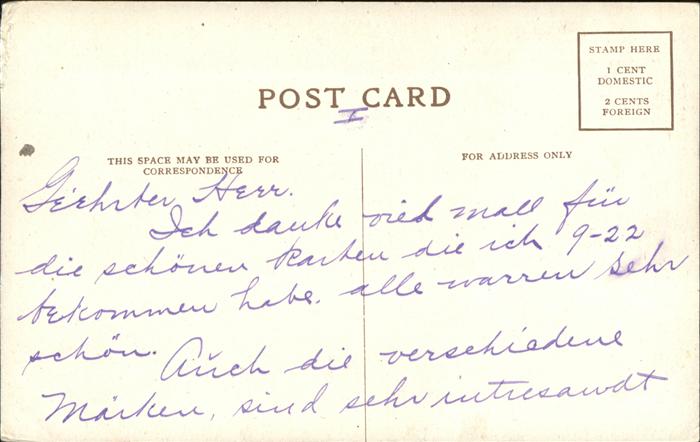 STAMP HERE
1 CENT
DOMESTIC
2 CENTS
FOREIGN
POST CARD
I
THIS SPACE MAY BE USED FOR
CORRESPONDENCE
FOR ADDRESS ONLY
Geehrter Herr.
Ich danke vied mall für
die schönen Karten die ich 9-22
bekommen habe. alle warren sehr
schön.
Auch die verschiedene
Marken, sind sehr intresandt